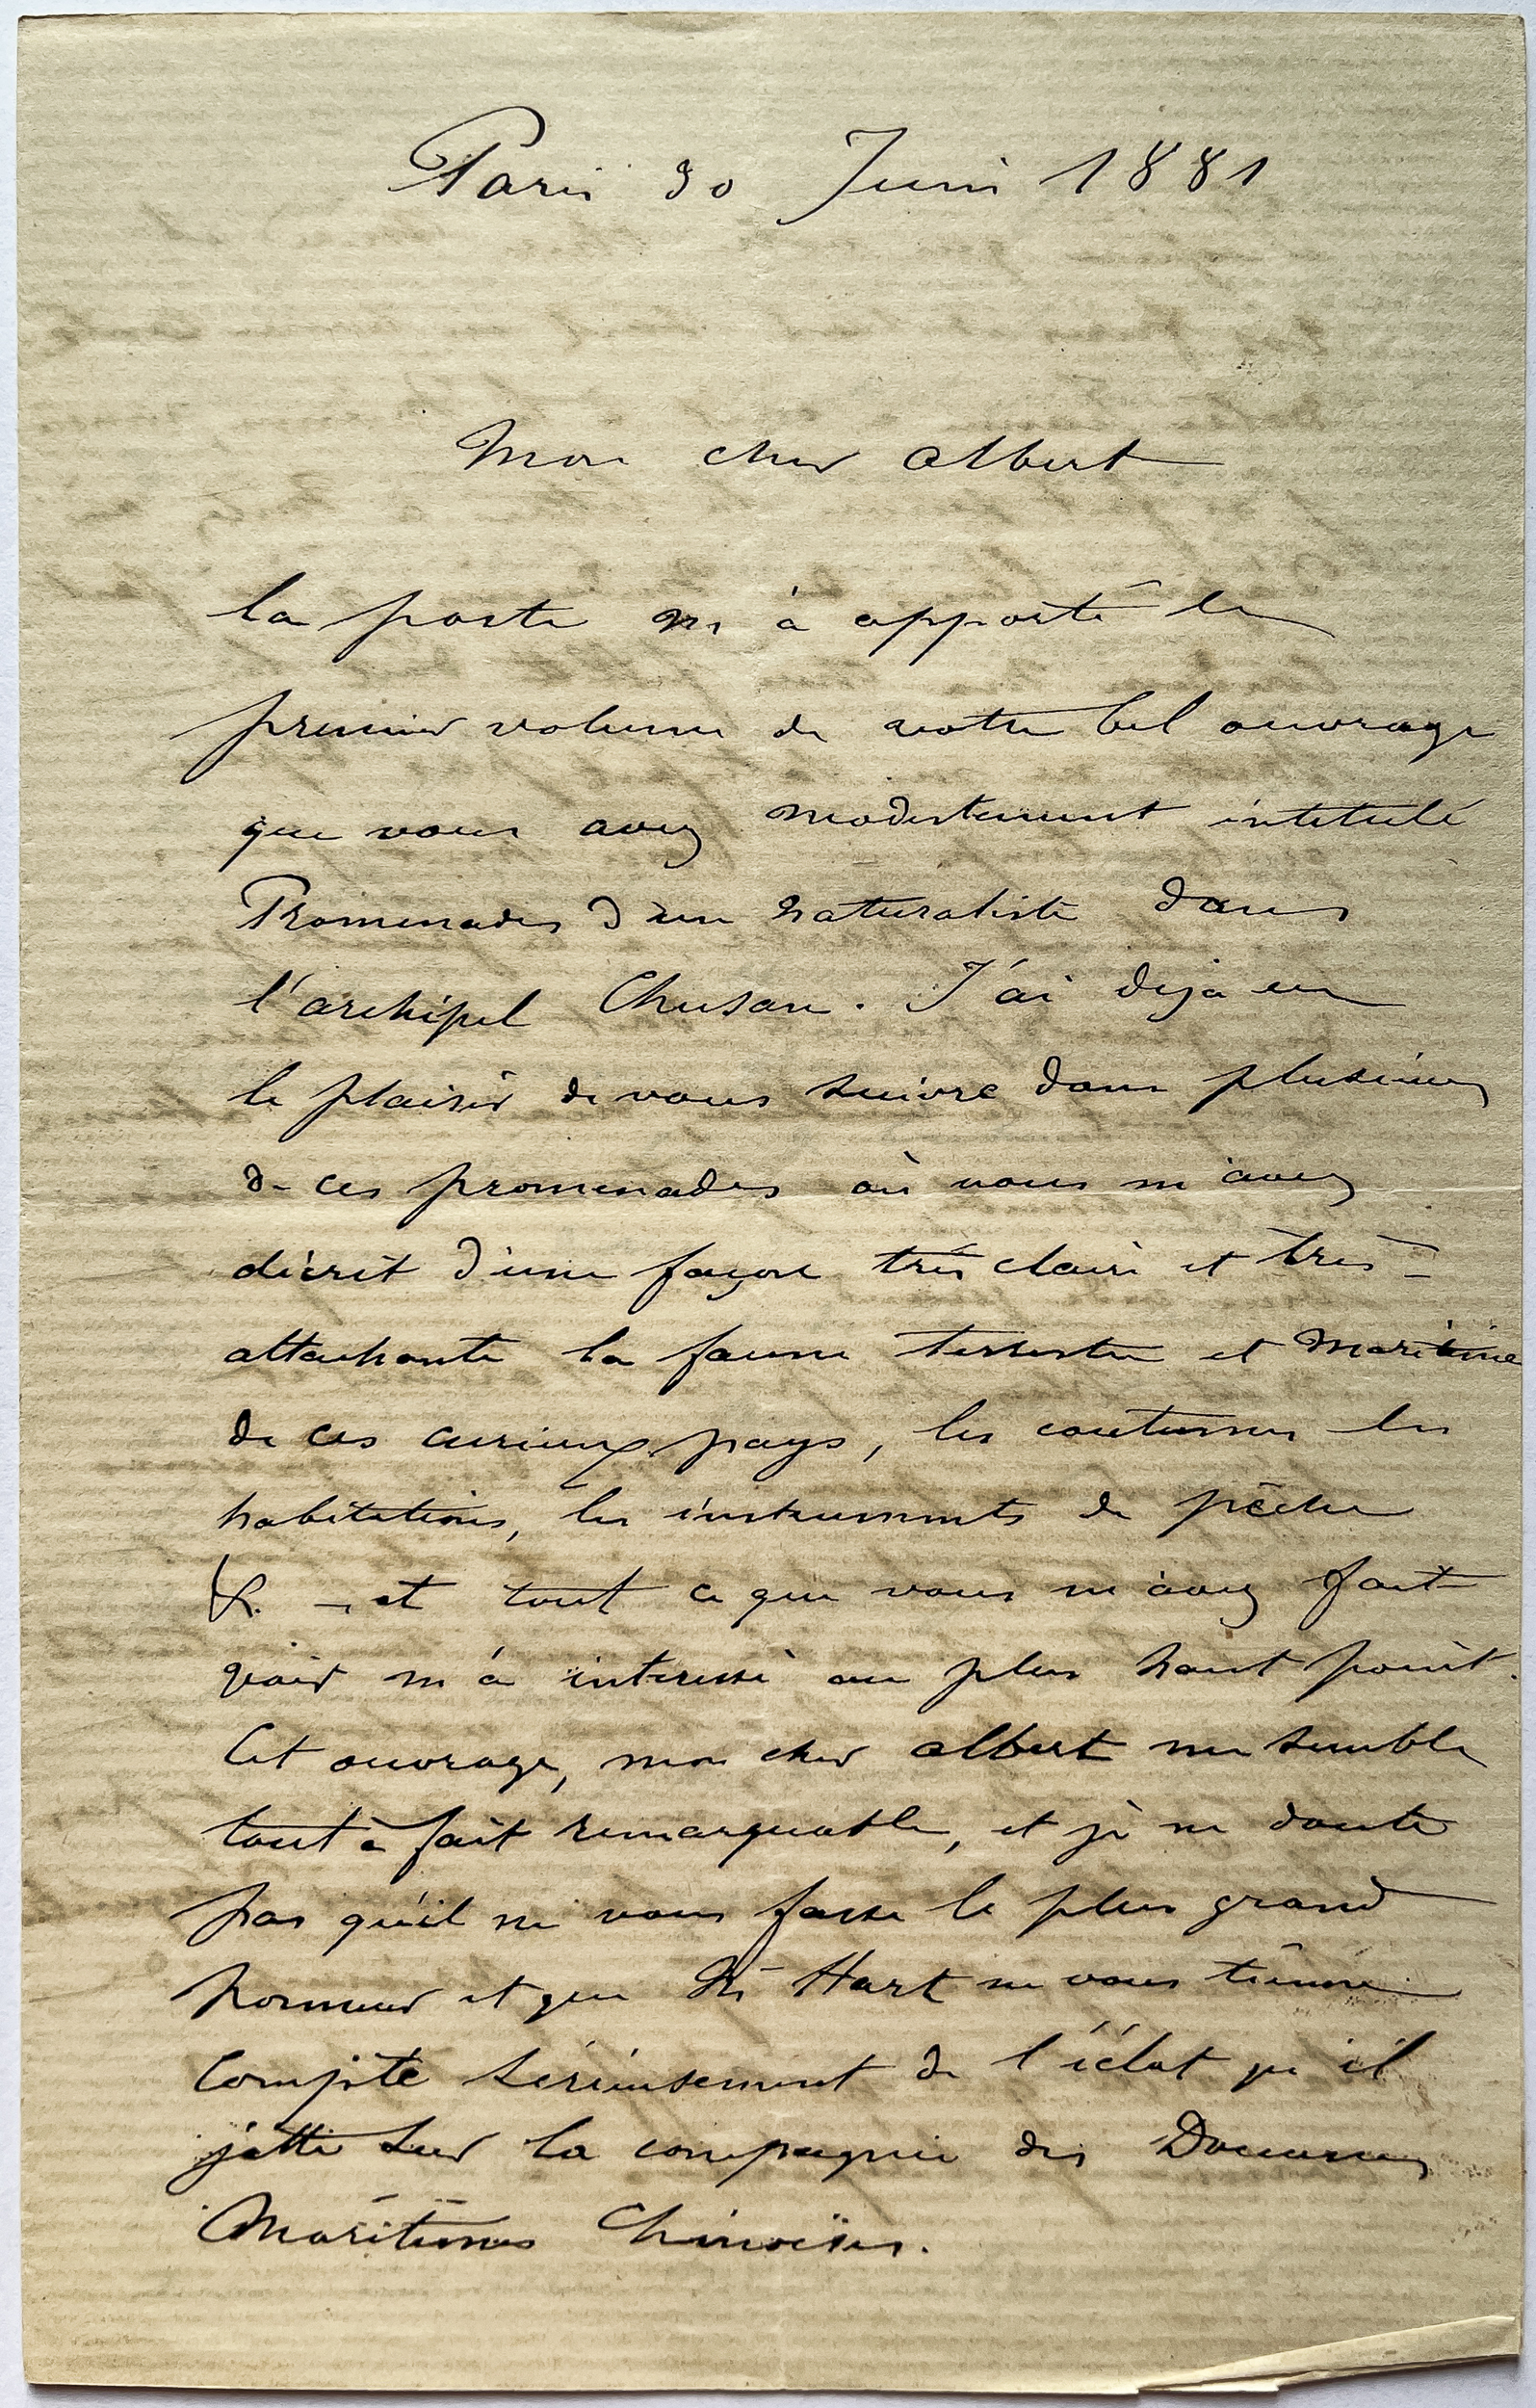 Paris 30 Juin 1881
Mon cher Albert
la poste m'à apporté le
premier volume de votre bel ouvrage
que vous avez modestement intitulé
Promenades d'un naturaliste dans
l'archipel Chusan. J'ai deja eu
le plaisir de vous suivre dans plusieurs
de ces promenades où vous m'avez
décrit d'une façon très claire et très
attachante la faune terrestre et maritime
de ces curieux pays, les coutumes les
habitations, les instruments de pêche
&. et tout ce que vous m'avez fait
voir m'a interessé au plus haut point.
Cet ouvrage, mon cher Albert me semble
tout à fait remarquable, et je ne doute
pas qu'il ne vous fasse le plus grand
honneur et que Mr Hart ne vous tienne
compte sérieusement de l'éclat qu'il
jette sur la compagnie des Douanes
Maritimes Chinoises.